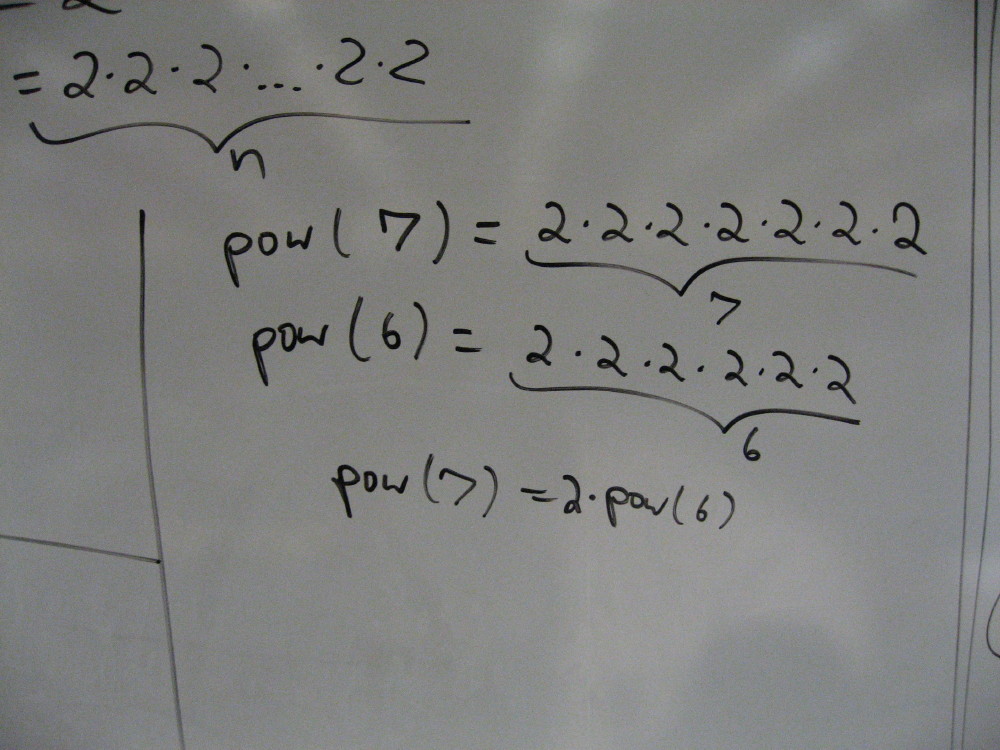 = 2
= 2·2·2·...·2·2
n
pow(7) = 2·2·2·2·2·2·2
7
pow(6) = 2·2·2·2·2·2
6
pow(7) = 2·pow(6)